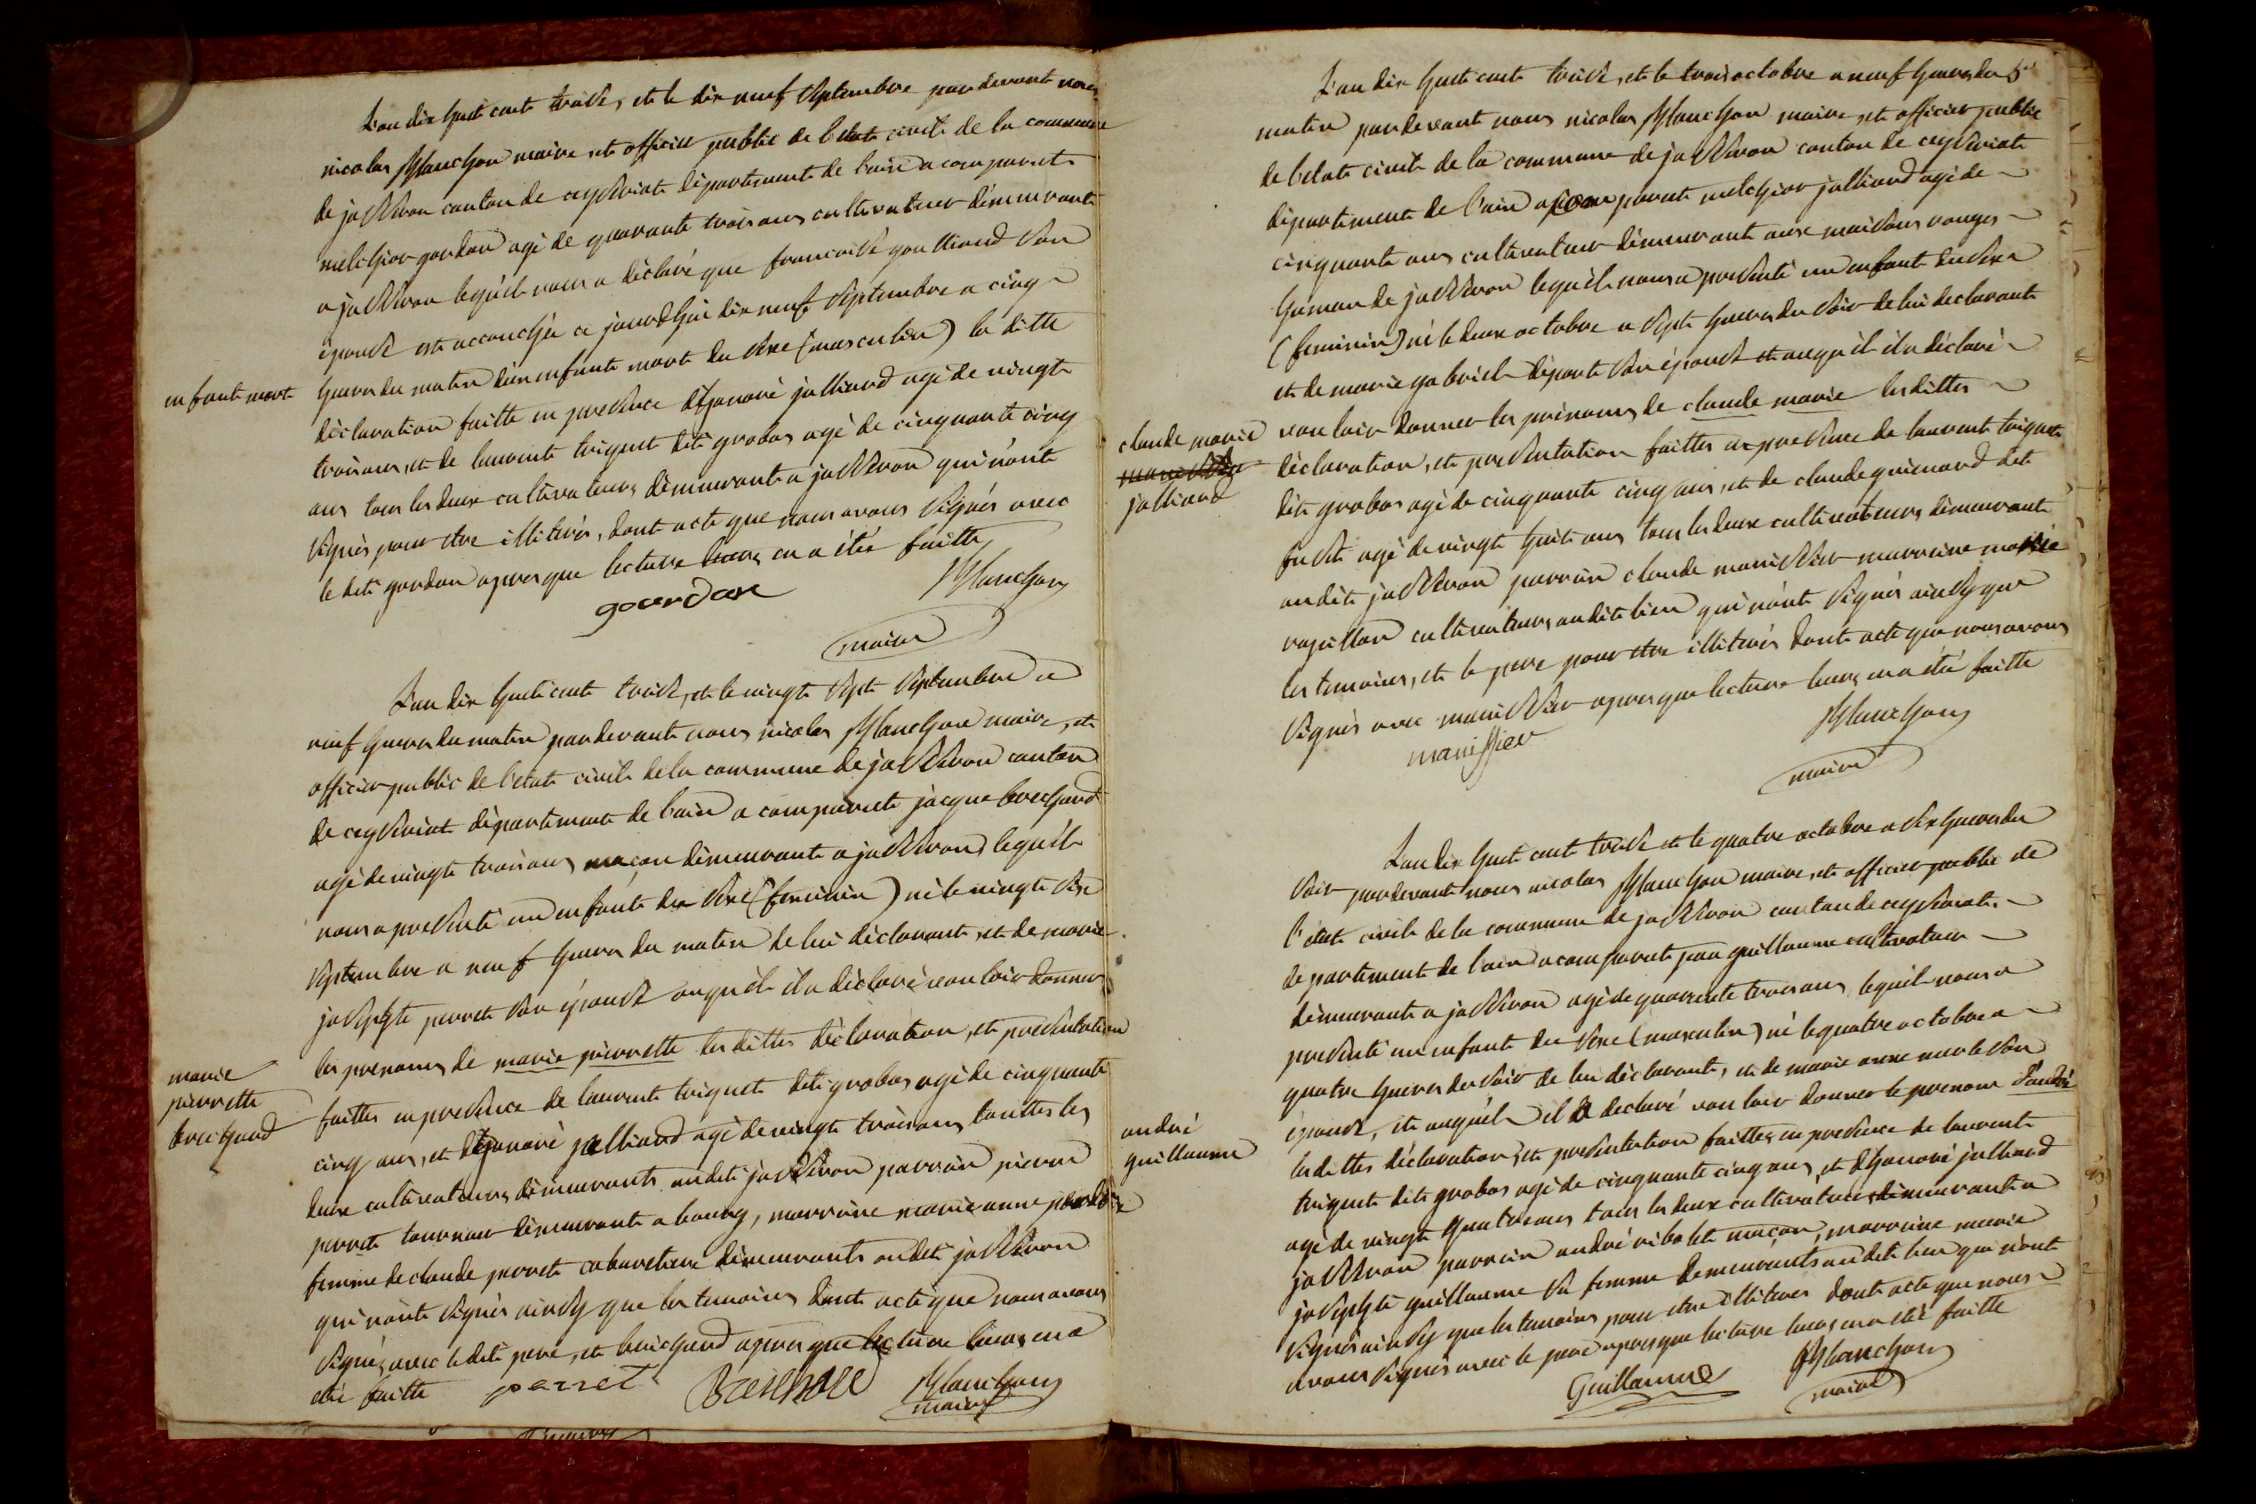 L'an dix huit cent treize, et le dix neuf septembre par devant nous
nicolas Blanchon maire et officier public de l'etat civile de la commune
de jasseron canton de ceyseriat département de l'ain a comparut
melchior gourdan agé de quarante trois ans cultivateur demeurant
a jasseron lequel nous a déclaré que francoise goulliand son
épouse est accouchée ce jourdhui dix neuf septembre a cinq
enfant mort
heures du matin d'un enfant mort du sexe (masculin) la ditte
déclaration faitte en presence d'honoré jalliard agé de vingt
trois ans, et de laurent triquet dit grobas agé de cinquante cinq
ans tous les deux cultivateurs demeurant a jasseron qui n'ont
signés pour etre illiterés, dont acte que nous avons signés avec
le dit gourdan apres que lecture leurs en a étée faitte
gourdan Blanchon
maire
L'an dix huit cent treize, et le vingt sept septembre a
neuf heures du matin par devant nous nicolas Blanchon maire, et
officier public de l'etat civile de la commune de jasseron canton
de ceyseriat département de l'ain a comparut jacque brechard
agé de vingt trois ans maçon demeurant a jasseron lequel
nous a presenté un enfant du sexe (feminin) né le vingt six
septembre a neuf heures du matin de lui déclarant et de marie
josephte perret son épouse auquel il a déclaré vouloir donner
les prenoms de marie pierrette les dittes déclaration, et presentation
marie
pierrette
brechard
faittes en presence de laurent triquet dit grobas agé de cinquante
cinq ans, et d'honoré jalliard agé de vingt trois ans, touttes les
deux cultivateurs demeurants audit jasseron parrain pierre
perret tourneur demeurant a bourg, marraine marie anne
femme de claude perret cabaretiere demeurants audit jasseron
qui n'ont signés ainsy que les temoins dont acte que nous avons
signés avec le dit pere, et brechard apres que lecture leurs en a
étée faitte perret Brechard Blanchon
maire
L'an dix huit cent treize, et le trois octobre a neuf heures du
matin par devant nous nicolas Blanchon maire et officier public
de l'etat civile de la commune de jasseron canton de ceyseriat
département de l'ain a comparut melchior jalliard agé de
cinquante ans cultivateur demeurant aux maisons rouges
hameau de jasseron lequel nous a presenté un enfant du sexe
(feminin) né le deux octobre a sept heures du soir de lui declarant
et de marie gabriel deponte son épouse et auquel il a déclaré
vouloir donner les prénoms de claude marie les dittes
claude marie
jalliard
déclaration, et presentation faittes en presence de laurent triquet
dit grobas agé de cinquante cinq ans, et de claude guienard dit
agé de vingt huit ans tous les deux cultivateurs demeurant
audit jasseron parrain claude manissier marraine marie
rapillon cultivateurs audit lieu qui n'ont signés ainsy que
les temoins, et le pere pour etre illiterés dont acte que nous avons
signés avec manissier apres que lecture leurs en a été faitte
manissier Blanchon
maire
L'an dix huit cent treize et le quatre octobre a six heures du
soir par devant nous nicolas Blanchon maire, et officier public de
l'etat civile de la commune de jasseron canton de ceyseriat
departement de l'ain a comparut jean guillaume cultivateur
demeurant a jasseron agé de quarante trois ans lequel nous a
presenté un enfant du sexe (masculin) né le quatre octobre a
quatre heures du soir de lui déclarant, et de marie anne merle son
épouse, et auquel il a declaré vouloir donner le prenom d'andré
andré
guillaume
les dittes déclaration et presentation faittes en presence de laurent
triquet dit grobas agé de cinquante cinq ans, et d'honoré jalliard
agé de vingt quatre ans tous les deux cultivateurs demeurant a
jasseron parrain andré ribolet maçon, marraine marie
josephte guillaume sa femme demeurants audit lieu qui n'ont
signés ainsy que les temoins pour etre illiterés dont acte que nous
avons signés avec le pere apres que lecture leurs en a été faitte
Guillaume Blanchon
maire